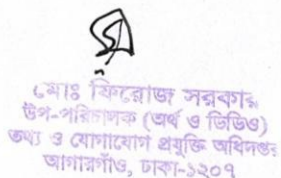 মোঃ ফিরোজ সরকার
উপ-পরিচালক (অর্থ ও ভিডিও)
তথ্য ও যোগাযোগ প্রযুক্তি অধিদপ্তর
আগারগাঁও, ঢাকা-১২০৭